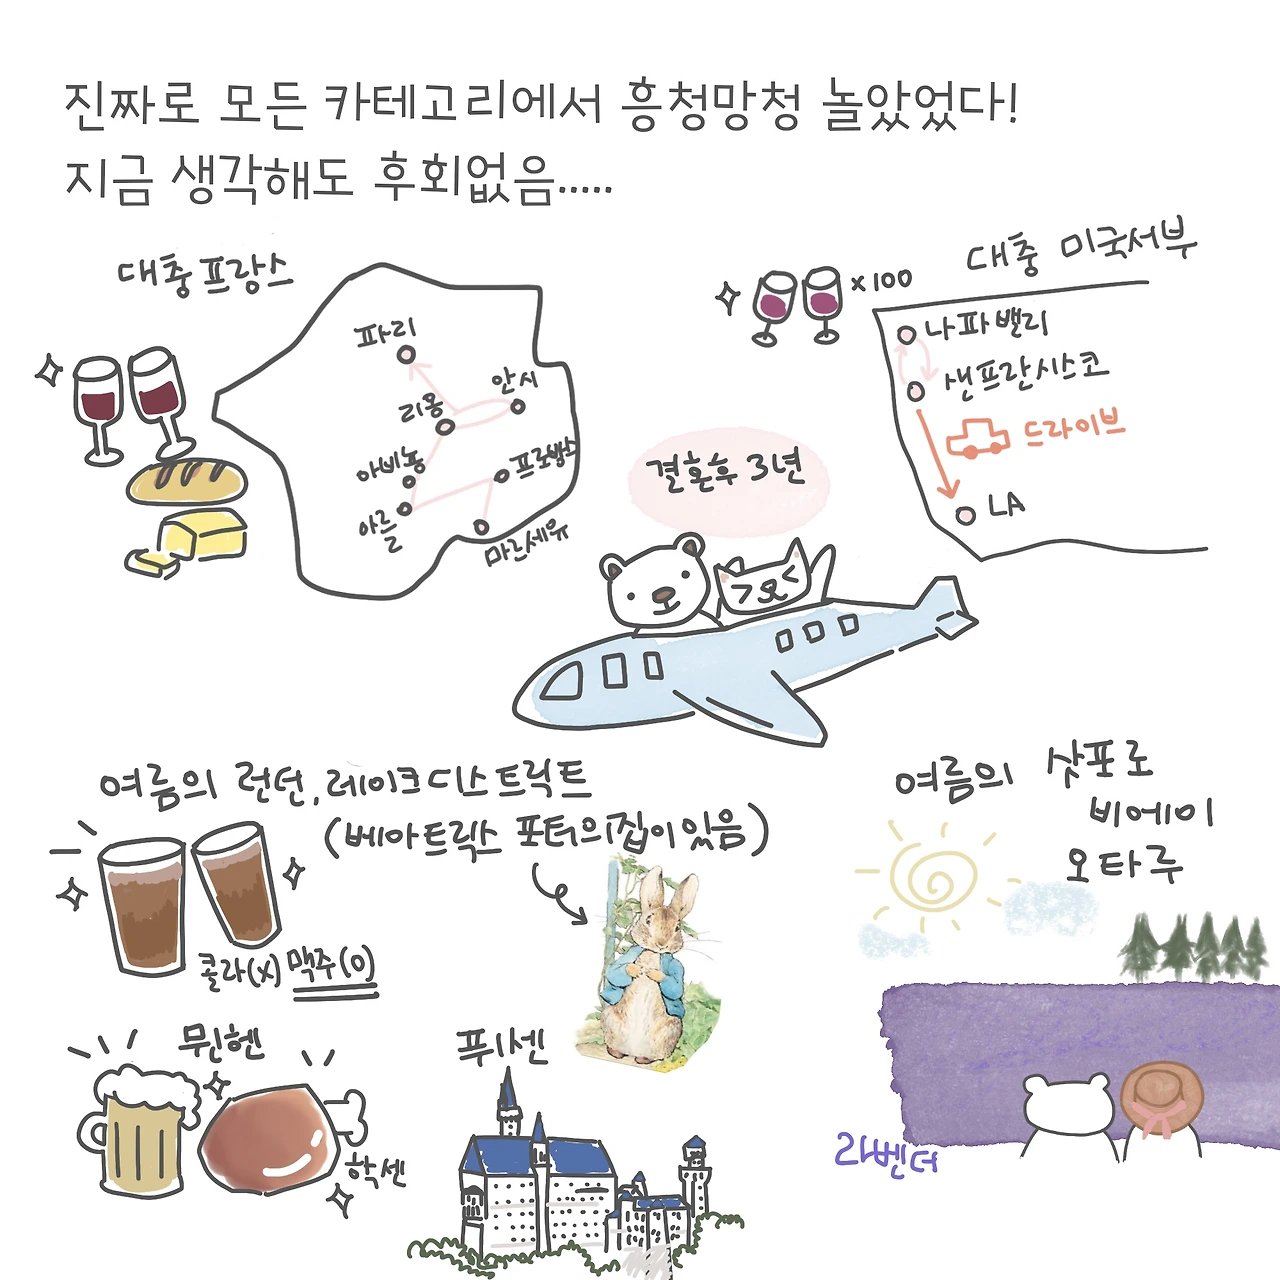 진짜로 모든 카테고리에서 흥청망청 놀았었다!
지금 생각해도 후회없음.....
대충 프랑스
파리
안시
리옹
아비뇽
프로방스
아를
마르세유
x100
대충 미국서부
나파밸리
샌프란시스코
드라이브
LA
결혼후 3년
여름의 런던, 레이크디스트릭트
(베아트릭스 포터의집이있음)
콜라(x) 맥주(o)
뮌헨
학센
퓌센
여름의 삿포로
비에이
오타루
라벤더